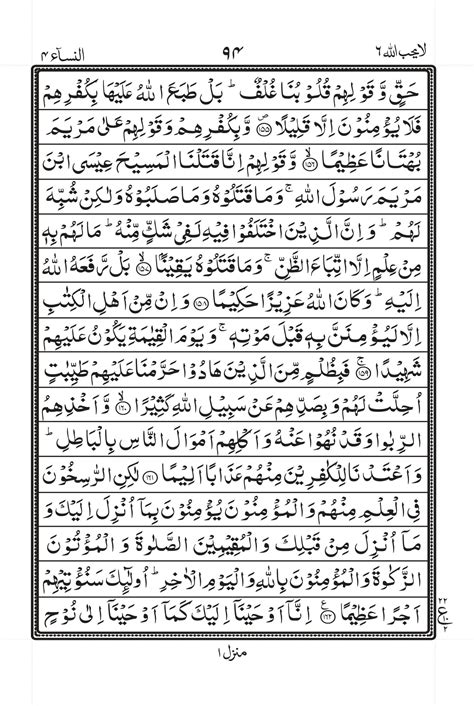 لایحب الله ٦ ٩٤ النسآء ٤
حَقٍّ وَّ قَوْلِهِمْ قُلُوْبُنَا غُلْفٌ ؕ بَلْ طَبَعَ اللّٰهُ عَلَیْهَا بِكُفْرِهِمْ
فَلَا یُؤْمِنُوْنَ اِلَّا قَلِیْلًا ۪﴿۱۵۵﴾ وَّ بِكُفْرِهِمْ وَ قَوْلِهِمْ عَلٰی مَرْیَمَ
بُهْتَانًا عَظِیْمًا ﴿۱۵۶﴾ۙ وَّ قَوْلِهِمْ اِنَّا قَتَلْنَا الْمَسِیْحَ عِیْسَی ابْنَ
مَرْیَمَ رَسُوْلَ اللّٰهِ ۚ وَ مَا قَتَلُوْهُ وَ مَا صَلَبُوْهُ وَ لٰكِنْ شُبِّهَ
لَهُمْ ؕ وَ اِنَّ الَّذِیْنَ اخْتَلَفُوْا فِیْهِ لَفِیْ شَكٍّ مِّنْهُ ؕ مَا لَهُمْ بِهٖ
مِنْ عِلْمٍ اِلَّا اتِّبَاعَ الظَّنِّ ۚ وَ مَا قَتَلُوْهُ یَقِیْنًۢا ﴿۱۵۷﴾ۙ بَلْ رَّفَعَهُ اللّٰهُ
اِلَیْهِ ؕ وَ كَانَ اللّٰهُ عَزِیْزًا حَكِیْمًا ﴿۱۵۸﴾ وَ اِنْ مِّنْ اَهْلِ الْكِتٰبِ
اِلَّا لَیُؤْمِنَنَّ بِهٖ قَبْلَ مَوْتِهٖ ۚ وَ یَوْمَ الْقِیٰمَةِ یَكُوْنُ عَلَیْهِمْ
شَهِیْدًا ﴿۱۵۹﴾ۚ فَبِظُلْمٍ مِّنَ الَّذِیْنَ هَادُوْا حَرَّمْنَا عَلَیْهِمْ طَیِّبٰتٍ
اُحِلَّتْ لَهُمْ وَ بِصَدِّهِمْ عَنْ سَبِیْلِ اللّٰهِ كَثِیْرًا ﴿۱۶۰﴾ۙ وَّ اَخْذِهِمُ
الرِّبٰوا وَ قَدْ نُهُوْا عَنْهُ وَ اَكْلِهِمْ اَمْوَالَ النَّاسِ بِالْبَاطِلِ ؕ
وَ اَعْتَدْنَا لِلْكٰفِرِیْنَ مِنْهُمْ عَذَابًا اَلِیْمًا ﴿۱۶۱﴾ لٰكِنِ الرّٰسِخُوْنَ
فِی الْعِلْمِ مِنْهُمْ وَ الْمُؤْمِنُوْنَ یُؤْمِنُوْنَ بِمَاۤ اُنْزِلَ اِلَیْكَ وَ
مَاۤ اُنْزِلَ مِنْ قَبْلِكَ وَ الْمُقِیْمِیْنَ الصَّلٰوةَ وَ الْمُؤْتُوْنَ
الزَّكٰوةَ وَ الْمُؤْمِنُوْنَ بِاللّٰهِ وَ الْیَوْمِ الْاٰخِرِ ؕ اُولٰٓئِكَ سَنُؤْتِیْهِمْ
اَجْرًا عَظِیْمًا ﴿۱۶۲﴾ اِنَّاۤ اَوْحَیْنَاۤ اِلَیْكَ كَمَاۤ اَوْحَیْنَاۤ اِلٰی نُوْحٍ
٢٢ ع ١٠ ٢
منزل ١